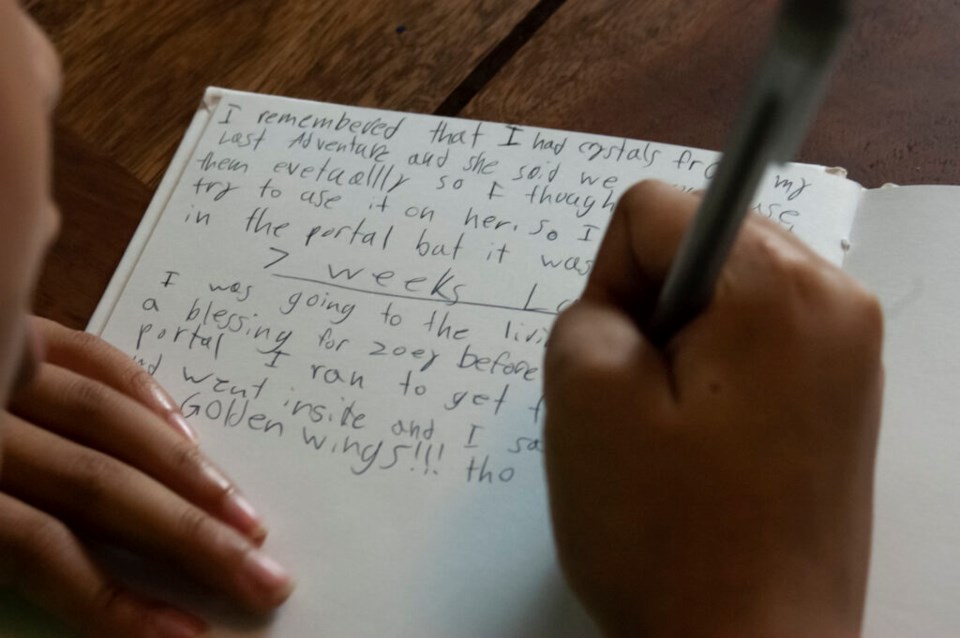 I remembered that I had crystals my
Last Adventure and she said we use
them evetuallly so I though
try to use it on her. so I
in the portal but it was
7 weeks
I was going to the
a blessing for zoey before
portal I ran to get
went inside and I
Golden wings!!! tho